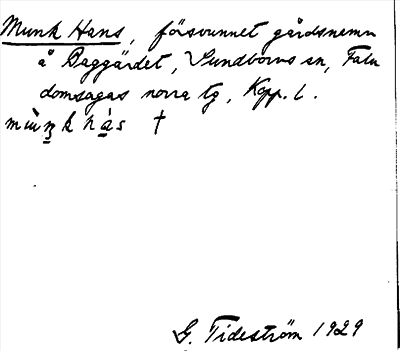 Munk Hans, försvunnet gårdsnamn
å Baggärdet, Sundborns sn, Falu
domsagas norra tg, Kopp. l.
G. Tideström 1929